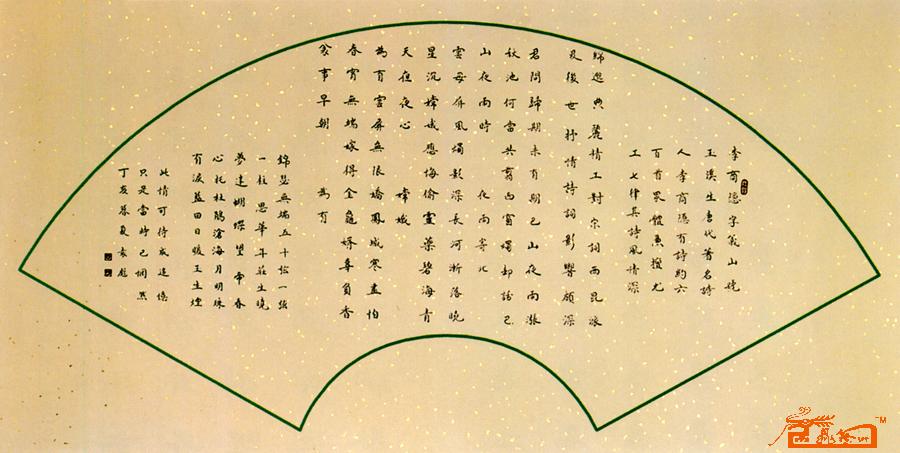 李商隱字義山號
玉溪生唐代著名詩
人李商隱有詩約六
百首眾體兼擅尤
工七律其詩風情深
綿邈典麗精工對宋詞西昆派
及後世抒情詩詞影響頗深
君問歸期未有期巴山夜雨漲
秋池何當共剪西窗燭卻話巴
山夜雨時 夜雨寄北
雲母屏風燭影深長河漸落曉
星沉嫦娥應悔偷靈藥碧海青
天夜夜心 嫦娥
為有雲屏無限嬌鳳城寒盡怕
春宵無端嫁得金龜婿辜負香
衾事早朝 為有
錦瑟無端五十弦一弦
一柱思華年莊生曉
夢迷蝴蝶望帝春
心托杜鵑滄海月明珠
有淚藍田日暖玉生煙
此情可待成追憶
只是當時已惘然
丁亥暮夏
TM